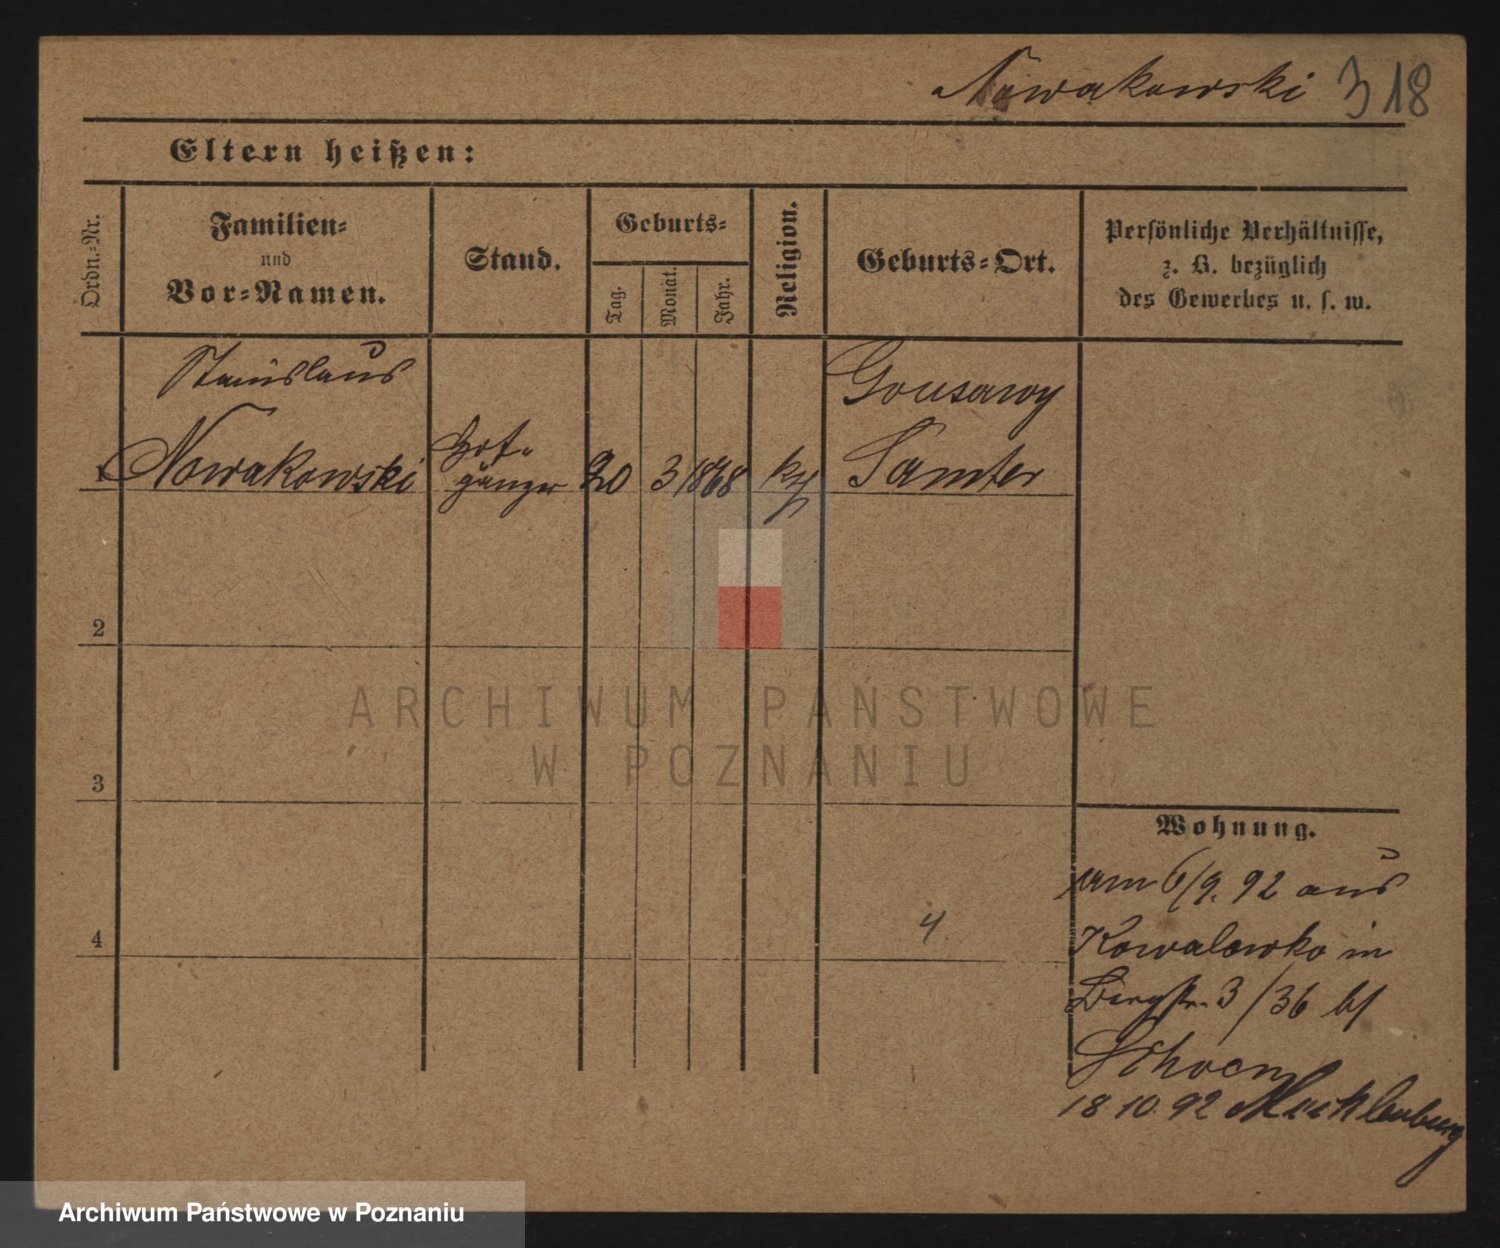 Nowakowski 318
Eltern heißen:
Ordn.-Nr.
Familien-
und
Vor-Namen.
Stand.
Geburts-
Tag.
Monat.
Jahr.
Religion.
Geburts-Ort.
Persönliche Verhältnisse,
z. B. bezüglich
des Gewerbes u. s. w.
Stanislaus
Nowakowski
gänger
20 3 1868
Samter
1
2
3
4
4
ARCHIWUM PAŃSTWOWE
W POZNANIU
Wohnung.
am 6/9. 92 aus
Kowalewko in
Bergstr. 3/36 bf
Schoen
18 10. 92 Mecklenburg
Archiwum Państwowe w Poznaniu